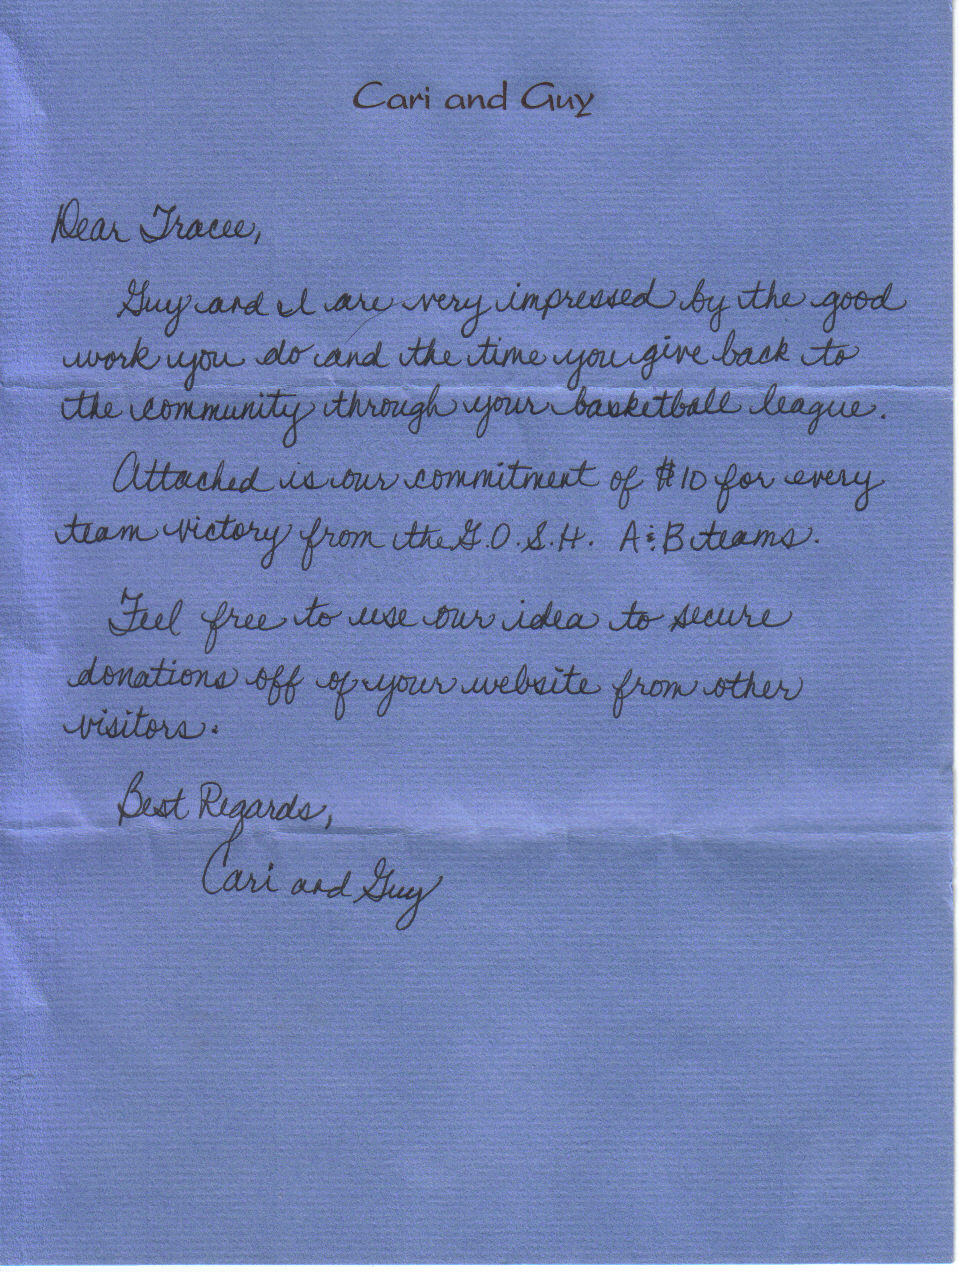 Cari and Guy
Dear Tracee,
Guy and I are very impressed by the good
work you do and the time you give back to
the community through your basketball league.
Attached is our commitment of $10 for every
team victory from the G.O.S.H. A&B teams.
Feel free to use our idea to secure
donations off of your website from other
visitors.
Best Regards,
Cari and Guy